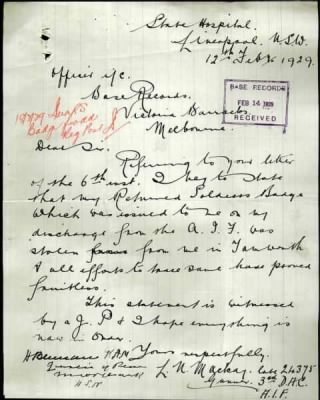 State Hospital,
Liverpool. N.S.W.
12th of Feb 1929.
Officer i/c.
Base Records.
Victoria Barracks,
Melbourne.
BASE RECORDS
FEB 14 1929
RECEIVED
Badge
Dear Sir.
Referring to your letter
of the 6th inst. I beg to state
that my Returned Soldiers Badge
which was issued to me on my
discharge from the A.I.F. was
stolen from me in Tamworth
& all efforts to trace same have proved
fruitless.
This statement is witnessed
by a J.P. & I hope everything is
now in order.
Yours respectfully.
L. N. Mackay. late 24375
Gunner. 3rd D.A.C.
A.I.F.
N.S.W